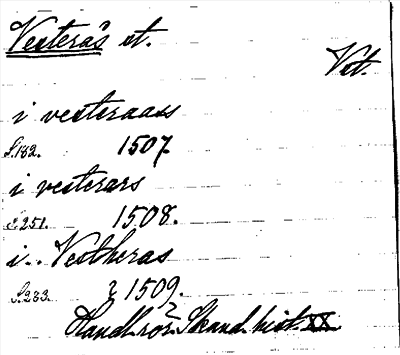 Vesterås st.
Vst.
i vesteraass
S.182. 1507.
i vesterars
S.251. 1508.
i.. Vestheras
S.283. 2/2 1509.
Handl. rör. Skand. hist. XX